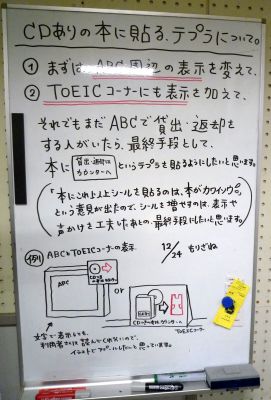 CDありの本に貼る、テプラについて。
① まずはABC周辺の表示を変えて、
② TOEICコーナーにも表示を加えて、
それでもまだABCで貸出・返却を
する人がいたら、最終手段として、
本に 貸出・返却は カウンターへ というテプラを貼るようにしたいと思います。
「本にこれ以上シールを貼るのは、本がカワイソウだ」
という意見が出たので、シールを増やすのは、表示や
声かけを工夫したあとの、最終手段にしたいと思います。
例) ABCとTOEICコーナーの表示
12/24 もりざね
ABC
or
カウンターへ
TOEICコーナー
文字で表示しても、
利用者さんは読んでくれないので、
イラストでアピールしたいと思っています。